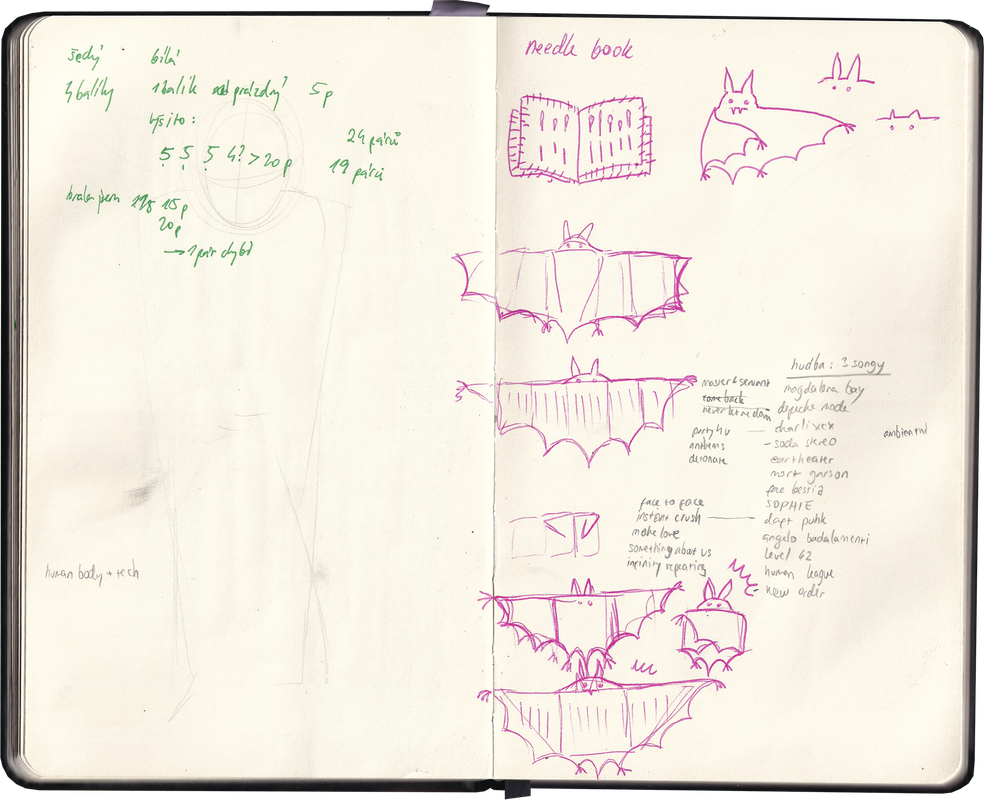 šedý bílá
4 balíky 1 balík prázdný 5p
vyšito:
5 5 5 4? > 20p
24 párů
19 párů
brala jsem 15p
20p
→ 1 pár chybí
human body + tech
needle book
hudba: 3 songy
magdalena bay
depeche mode
charli xcx
- soda stereo
eartheater
mort garson
fae bestia
SOPHIE
daft punk
angelo badalamenti
level 42
human league
new order
ambientní
master & servant
come back
never let me down
party 4 u
anthems
detonate
face to face
instant crush
make love
something about us
infinity repeating